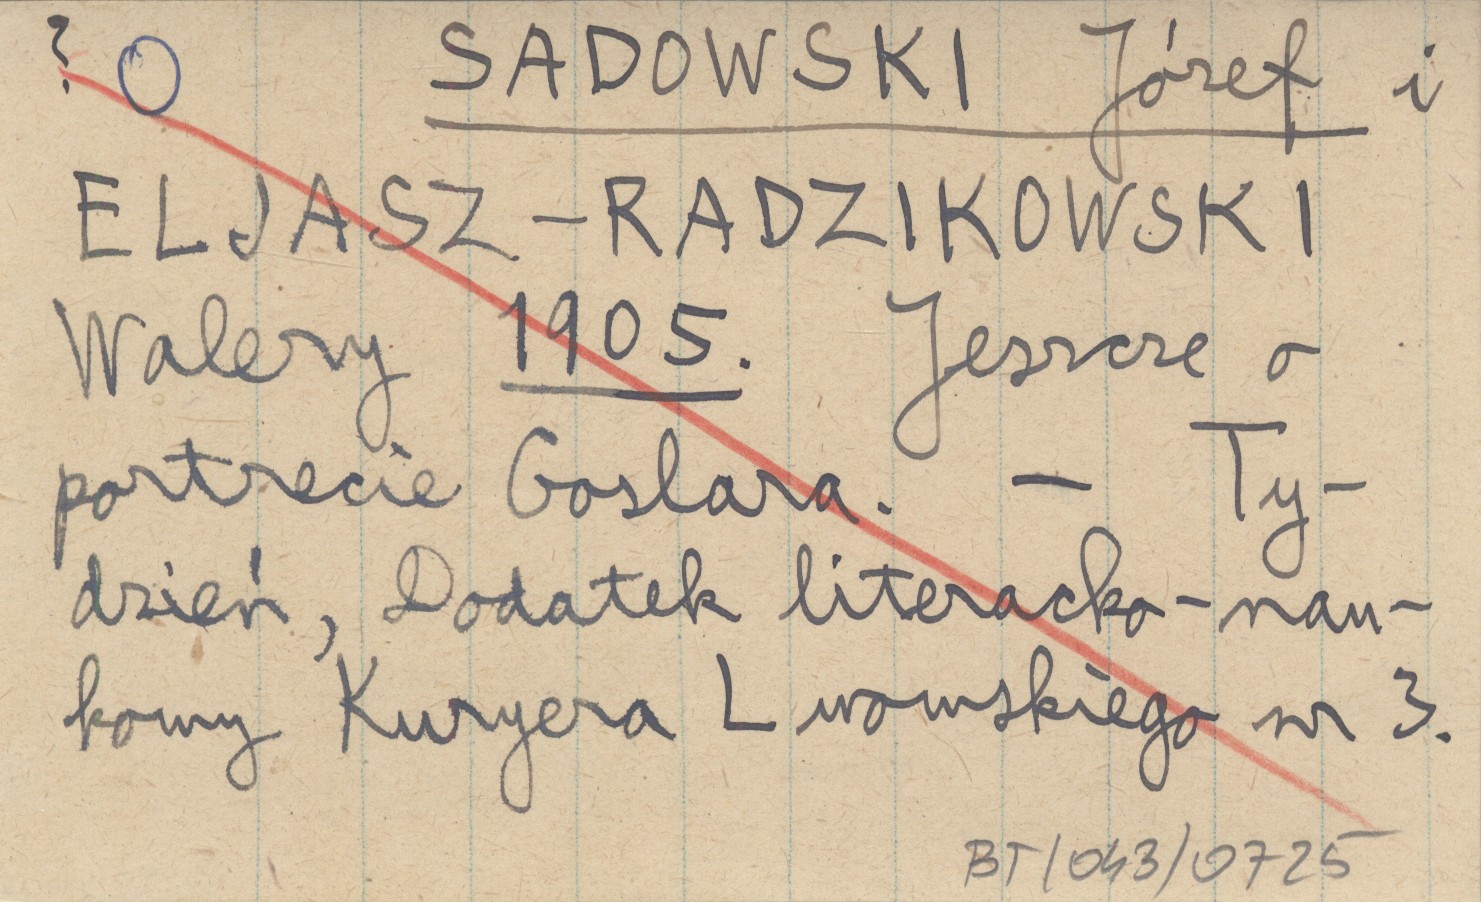 ? O SADOWSKI Józef i
ELJASZ-RADZIKOWSKI
Walery 1905. Jeszcze o
portrecie Goslara. — Ty-
dzień, Dodatek literacko-nau-
kowy Kuryera Lwowskiego nr 3.
BT/043/0725